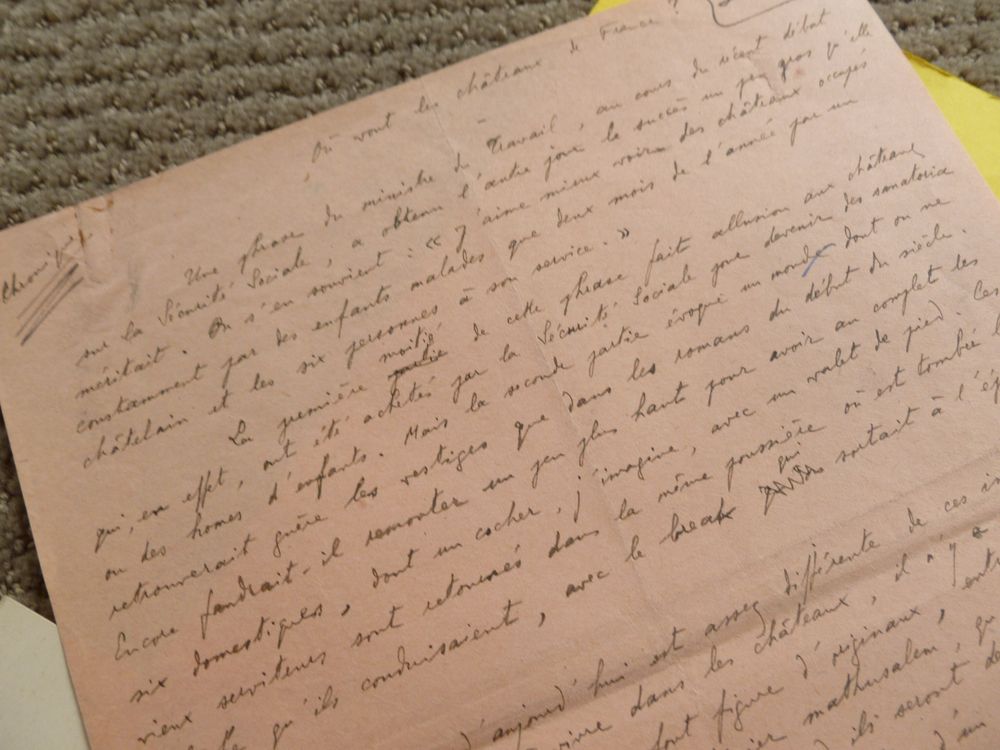 Où vont les châteaux de France ?
Chronique
Une phrase du ministre du Travail, au cours du récent débat
sur la Sécurité Sociale, a obtenu l'autre jour le succès un peu gros qu'elle
méritait. On s'en souvient : « J'aime mieux voir des châteaux occupés
constamment par des enfants malades que deux mois de l'année par un
châtelain et les six personnes à son service. »
La première moitié de cette phrase fait allusion aux châteaux
qui, en effet, ont été achetés par la Sécurité Sociale pour devenir des sanatoria
ou des homes d'enfants. Mais la seconde partie évoque un monde dont on ne
retrouverait guère les vestiges que dans les romans du début du siècle.
Encore faudrait-il remonter un peu plus haut pour avoir au complet les
six domestiques, dont un cocher, j'imagine, avec un valet de pied. Ces
vieux serviteurs sont retournés dans la même poussière où est tombée
qu'ils conduisaient, avec le break qui sortait à l'ép
aujourd'hui est assez différente de ces
vivre dans les châteaux, il n'y a
font figure d'originaux,
mathusalem,
ils seront